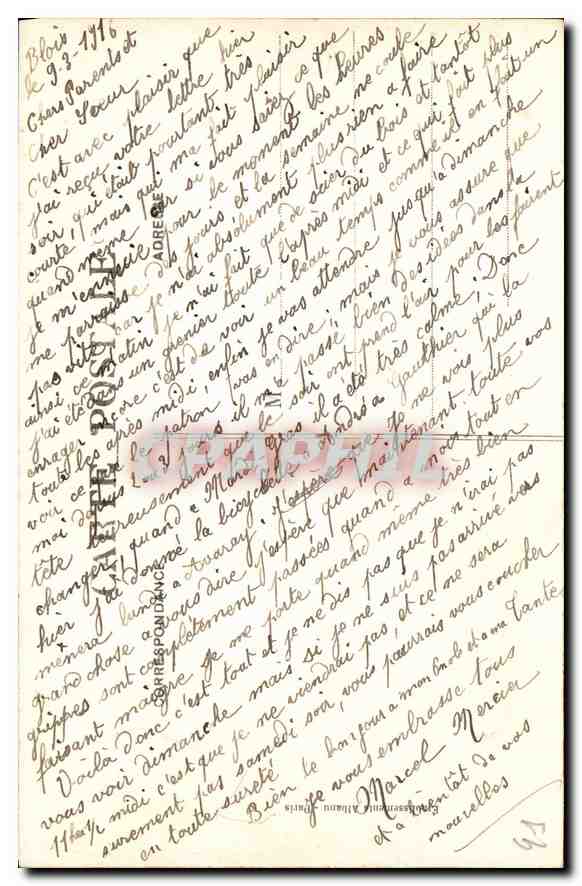 Blois
le 9-3-1916
Chers Parents et
Cher Sœur
C'est avec plaisir que
j'ai reçu votre lettre hier
soir qui était pourtant très
courte, mais qui m'a fait plaisir
quand même car si vous saviez ce que
je m'ennuie pour le moment les heures
me parraise des jours et la semaine ne coule
pas vite car je n'ai absolument plus rien a faire
ainsi ce matin je n'ai fait que de scier du bois et tantôt
j'ai été dans un grenier toute l'après midi et ce qui fait plus
enrager encore c'est de voir un beau temps comme il en fait un
toute les après midi, enfin je vas attendre jusqu'à dimanche
voir ce que le patron vas en dire, mais je vous assure que
moi dans 2 ou 3 jours il me passé bien des idées dans la
tête heureusement que le soir ont prend l'air pour les fairent
changer quand a Mardi Gras il a été très calme, Donc
hier j'ai donné la bicyclette André a Gauthier qui la
mènera lundi a Avaray, j'espère que Je ne vois plus
grand chose a vous dire j'espère que maintenant toute vos
grippes sont complètement passées quand a moi tout en
faisant maigre je me porte quand même très bien
Voilà donc c'est tout et je ne dis pas que je n'irai pas
vous voir dimanche mais si je ne suis pas arrivé vers
11 hes 1/2 midi c'est que je ne viendrai pas et ce ne sera
surement pas samedi soir, vous pourrais vous coucher
en toute sureté
Bien le bonjour a mon Onole et a ma Tante
Je vous embrasse tous
Marcel Mercier
et a bientôt de vos
nouvelles
CARTE POSTALE
CORRESPONDANCE
ADRESSE
M
Etablissements Albanu, Paris
CPAPHIL
41